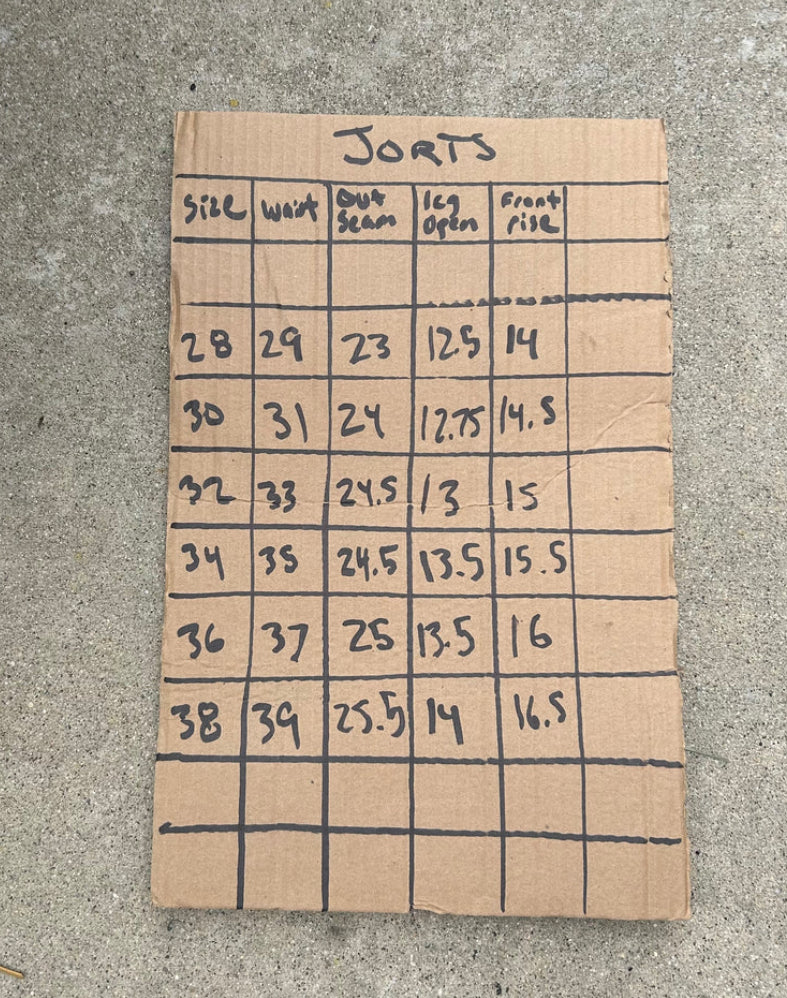 JORTS
Size Waist Out Seam leg Open Front rise
28 29 23 12.5 14
30 31 24 12.75 14.5
32 33 24.5 13 15
34 35 24.5 13.5 15.5
36 37 25 13.5 16
38 39 25.5 14 16.5